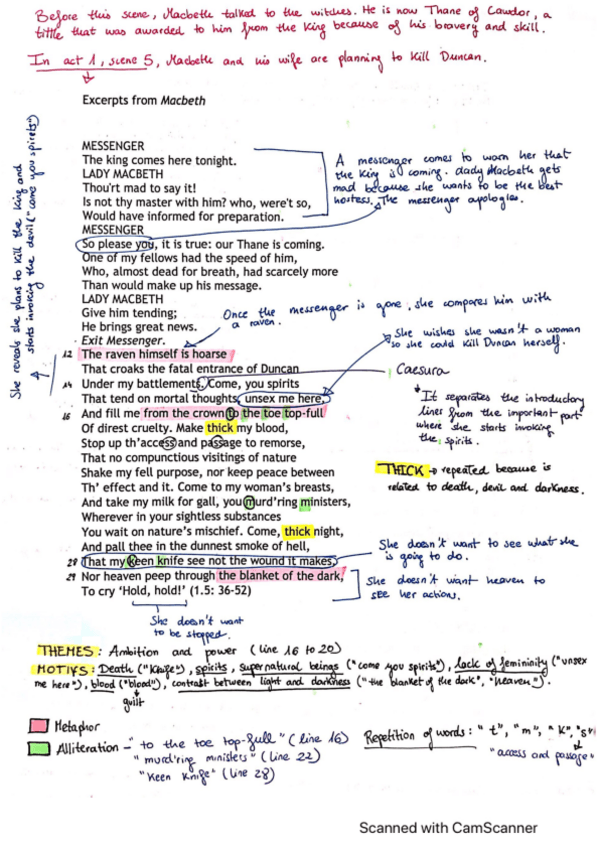 Before this scene, Macbeth talked to the witches. He is now Thane of Cawdor, a
tittle that was awarded to him from the King because of his bravery and skill.
In act 1, scene 5, Macbeth and his wife are planning to kill Duncan.
Excerpts from Macbeth
She reveals she plans to kill the king and
starts invoking the devil ("come you spirits")
MESSENGER
The king comes here tonight.
LADY MACBETH
Thou'rt mad to say it!
Is not thy master with him? who, were't so,
Would have informed for preparation.
A messenger comes to warn her that
the King is coming. Lady Macbeth gets
mad because she wants to be the best
hostess. The messenger apologies.
MESSENGER
So please you, it is true: our Thane is coming.
One of my fellows had the speed of him,
Who, almost dead for breath, had scarcely more
Than would make up his message.
LADY MACBETH
Give him tending;
He brings great news.
Exit Messenger.
Once the messenger is gone, she compares him with
a raven.
12 The raven himself is hoarse
That croaks the fatal entrance of Duncan
14 Under my battlements. Come, you spirits
That tend on mortal thoughts, unsex me here,
16 And fill me from the crown to the toe top-full
Of direst cruelty. Make thick my blood,
Stop up th'access and passage to remorse,
That no compunctious visitings of nature
Shake my fell purpose, nor keep peace between
Th' effect and it. Come to my woman's breasts,
And take my milk for gall, you murd'ring ministers,
Wherever in your sightless substances
You wait on nature's mischief. Come, thick night,
And pall thee in the dunnest smoke of hell,
28 That my keen knife see not the wound it makes,
29 Nor heaven peep through the blanket of the dark,
To cry 'Hold, hold!' (1.5: 36-52)
She wishes she wasn't a woman
so she could kill Duncan herself.
Caesura
It separates the introductory
lines from the important part
where she starts invoking
the spirits.
THICK → repeated because is
related to death, devil and darkness.
She doesn't want to see what she
is going to do.
She doesn't want heaven to
see her action.
She doesn't want
to be stopped.
THEMES: Ambition and power (line 16 to 20)
MOTIVS: Death ("Knife"), spirits, supernatural beings ("come you spirits"), lack of femininity ("unsex
me here"), blood ("blood"), contrast between light and darkness ("the blanket of the dark", "heaven").
guilt
Metaphor
Alliteration - "to the toe top-full" (line 16)
"murd'ring ministers" (line 22)
"Keen Knife" (line 28)
Repetition of words: "t", "m", "K", "s"
"access and passage"
Scanned with CamScanner